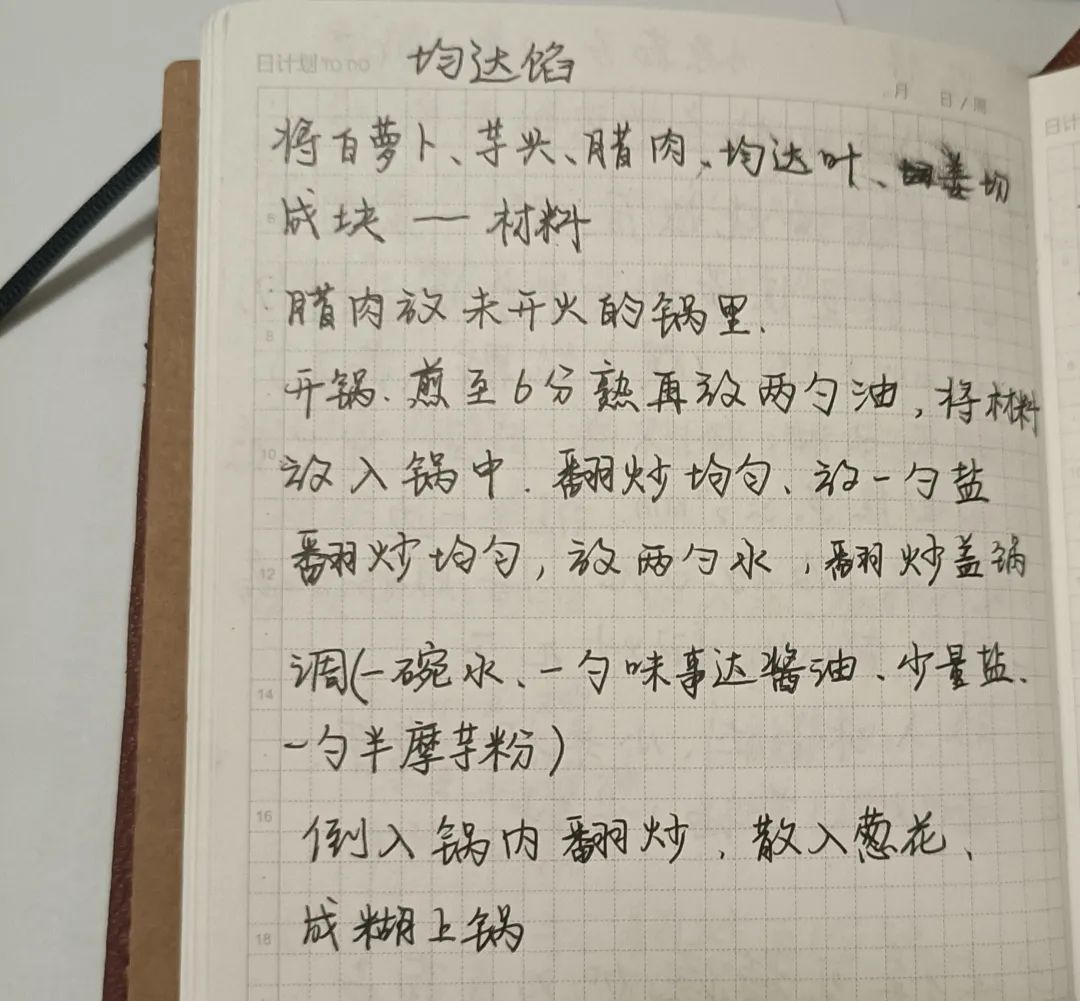 日计划 均达馅
月 日/周
将白萝卜、芋头、腊肉、均达叶、姜切
成块 — 材料
腊肉放未开火的锅里.
开锅.煎至6分熟再放两勺油,将材料
放入锅中.翻炒均匀、放一勺盐
翻炒均匀,放两勺水,翻炒盖锅
调(一碗水、一勺味事达酱油、少量盐、
一勺半摩芋粉)
倒入锅内翻炒,散入葱花、
成糊上锅
日计
6
8
10
12
14
16
18